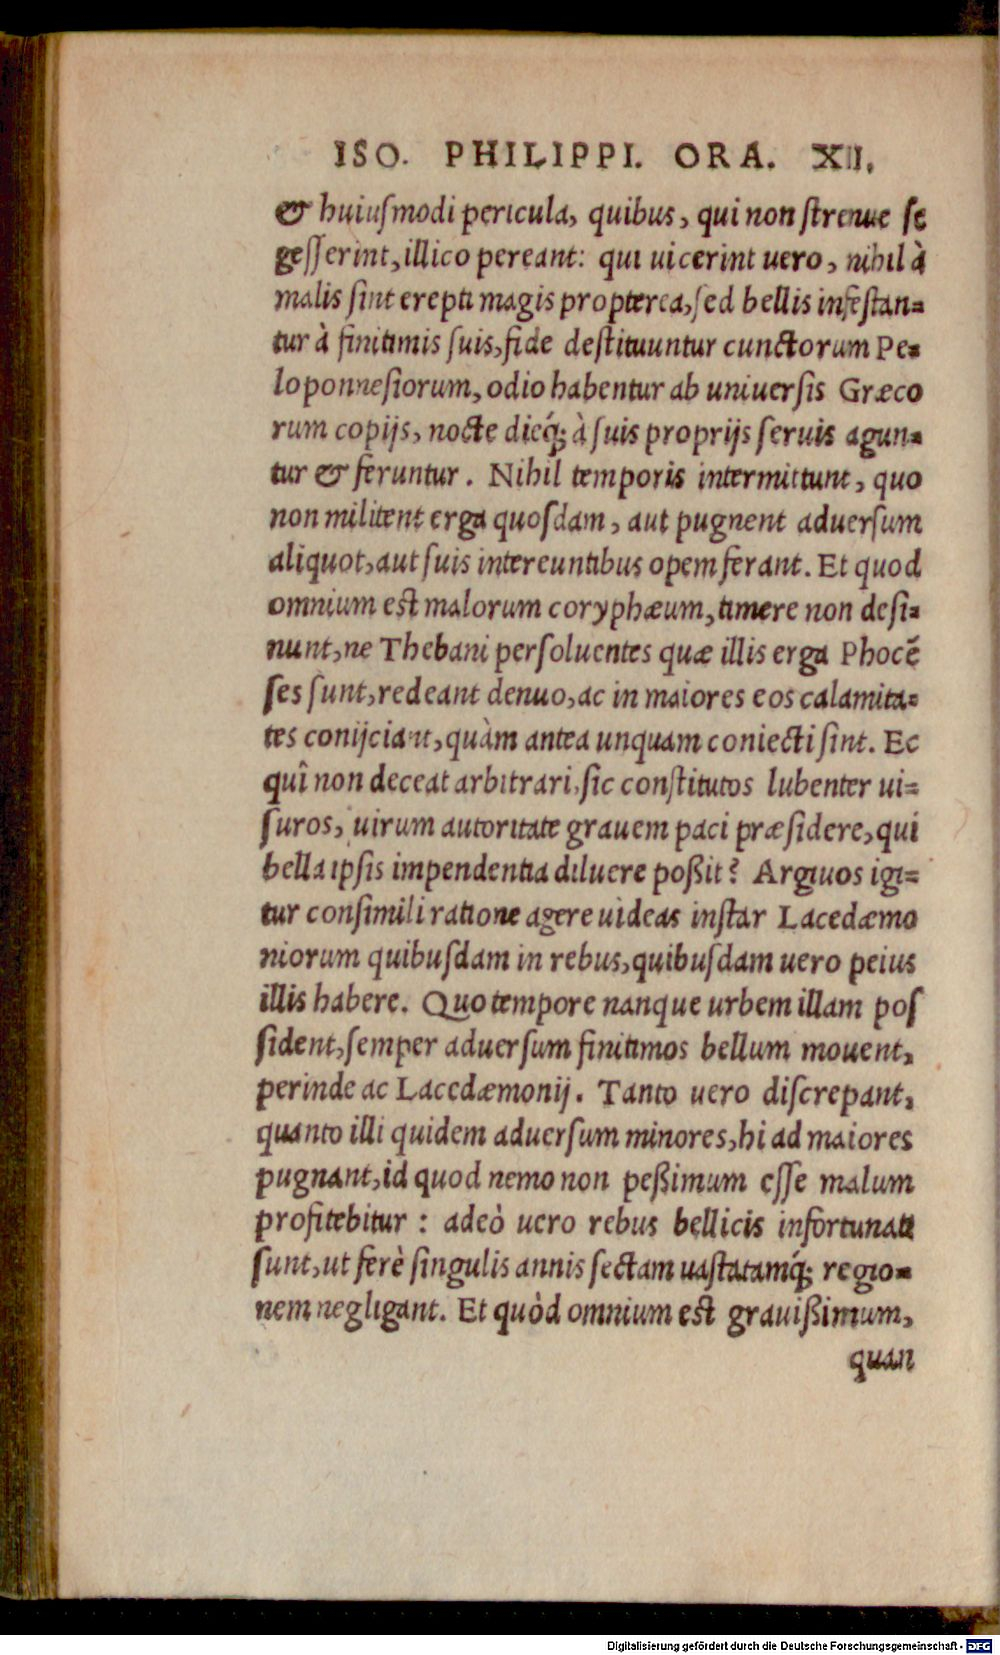 ISO. PHILIPPI. ORA. XII.
& huiusmodi pericula, quibus, qui non strenue se
gesserint, illico pereant: qui uicerint uero, nihil à
malis sint erepti magis propterea, sed bellis infestan=
tur à finitimis suis, fide destituuntur cunctorum Pe=
loponnesiorum, odio habentur ab uniuersis Græco
rum copijs, nocte dieq́; à suis proprijs seruis agun=
tur & feruntur. Nihil temporis intermittunt, quo
non militent erga quosdam, aut pugnent aduersum
aliquot, aut suis intereuntibus opem ferant. Et quod
omnium est malorum coryphæum, timere non desi=
nunt, ne Thebani persoluentes quæ illis erga Phocẽ
ses sunt, redeant denuo, ac in maiores eos calamita=
tes conijciant, quàm antea unquam coniecti sint. Ec
quî non deceat arbitrari, sic constitutos lubenter ui=
suros, uirum autoritate grauem paci præsidere, qui
bella ipsis impendentia diluere poßit? Argiuos igi=
tur consimili ratione agere uideas instar Lacedæmo
niorum quibusdam in rebus, quibusdam uero peius
illis habere. Quo tempore nanque urbem illam pos
sident, semper aduersum finitimos bellum mouent,
perinde ac Lacedæmonij. Tanto uero discrepant,
quanto illi quidem aduersum minores, hi ad maiores
pugnant, id quod nemo non peßimum esse malum
profitebitur: adeò uero rebus bellicis infortunati
sunt, ut ferè singulis annis sectam uastatamq́; regio=
nem negligant. Et quòd omnium est grauißimum,
quan
Digitalisierung gefördert durch die Deutsche Forschungsgemeinschaft - DFG